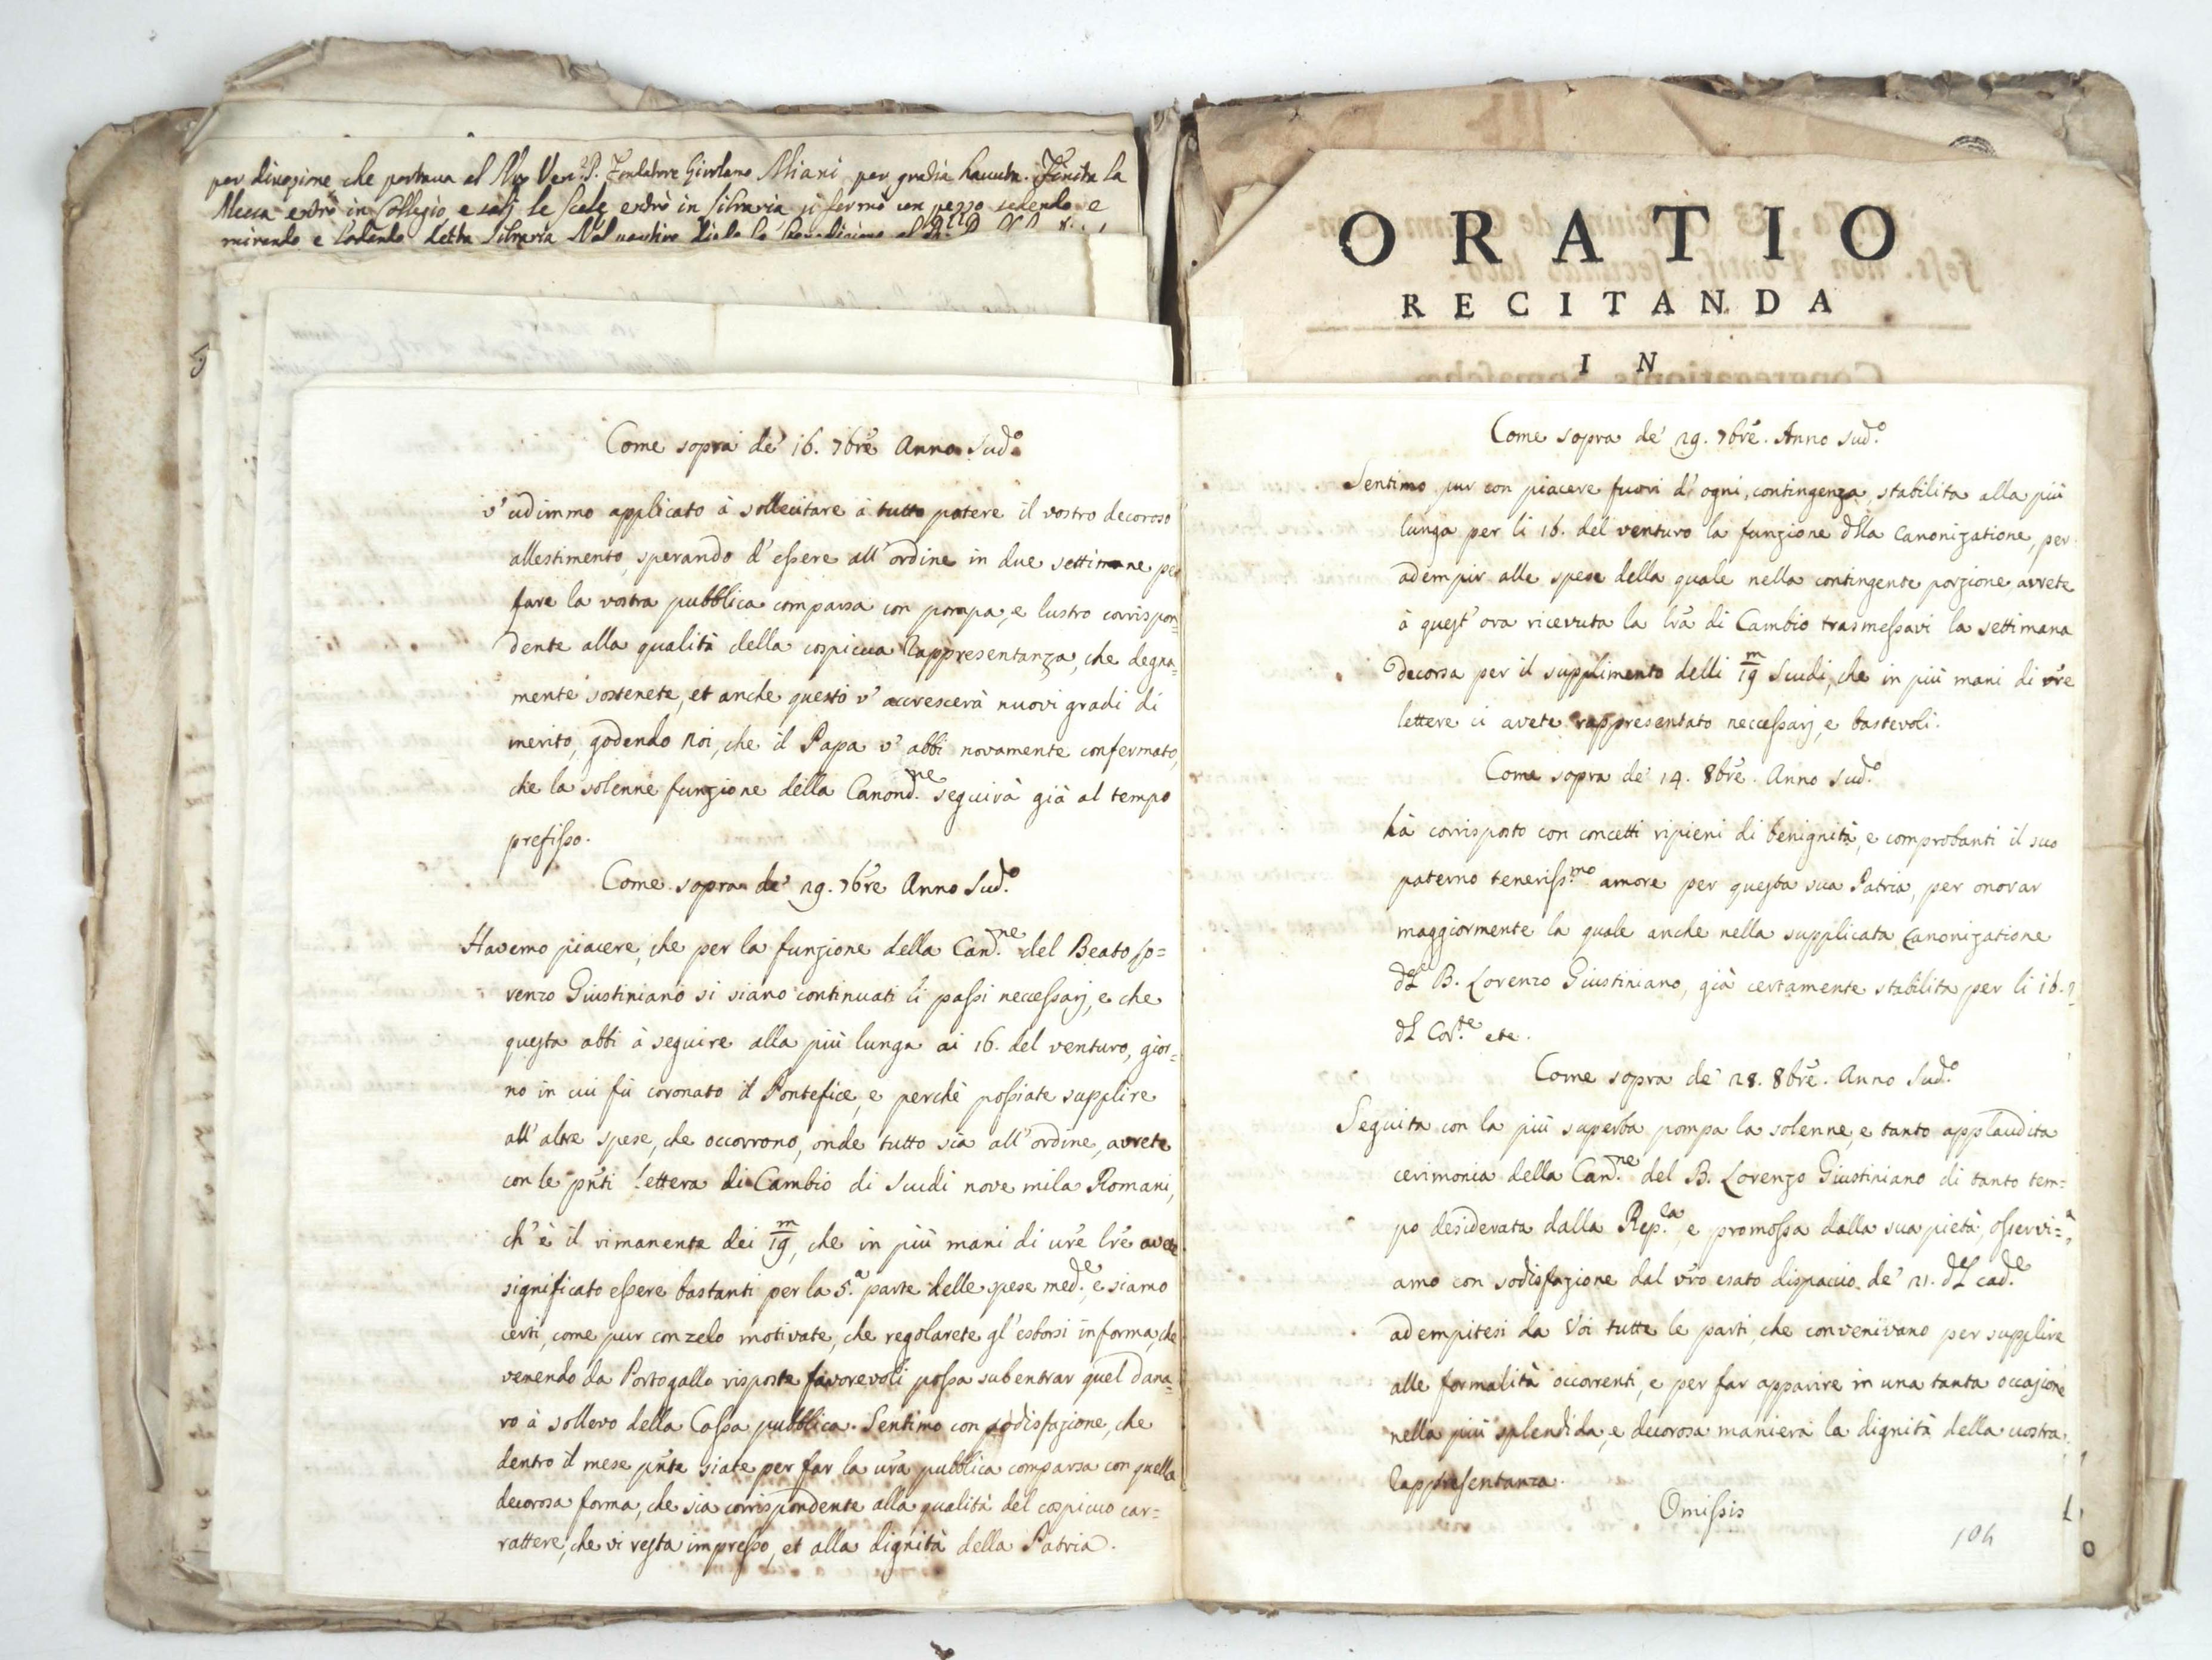 per divozione che portava al Ven. P. Fondatore Girolamo Miani per gradia havuta. Finita la
Messa entrò in Collegio, e salj le scale entrò in libraria si fermò un pezzo sedendo e
mirando e lodando detta libraria
ORATIO
RECITANDA
IN
Come sopra de' 16. 7bre Anno Sud.o
v'udimmo applicato à sollecitare à tutto potere il vostro decoroso
allestimento, sperando d'essere all'ordine in due settimane per
fare la vostra pubblica comparsa con pompa, e lustro corrispon=
dente alla qualità della cospicua Rappresentanza, che degna=
mente sostenete, et anche questo v'accrescerà nuovi gradi di
merito, godendo Noi, che il Papa v'abbi novamente confermato,
che la solenne funzione della Canond.ne seguirà già al tempo
prefisso.
Come sopra de' 29. 7bre Anno Sud.o
Havemo piacere, che per la funzione della Can.ne del Beato Lo=
renzo Giustiniano si siano continuati li passi necessarj, e che
questa abbi à seguire alla più lunga ai 16. del venturo, gior=
no in cui fù coronato il Pontefice, e perchè possiate supplire
all'altre spese, che occorrono, onde tutto sia all'ordine, avrete
con le pnti lettera di Cambio di Scudi nove mila Romani,
ch'è il rimanente dei 19/m, che in più mani di vre lre avete
significato essere bastanti per la 5.a parte delle spese med.e, e siamo
certi, come pur con zelo motivate, che regolarete gl'esborsi in forma, che
venendo da Portogallo risposte favorevoli possa subentrar quel dana=
ro à sollevo della Cassa pubblica. Sentimo con sodisfazione, che
dentro il mese pnte siate per far la vra pubblica comparsa con quella
decorosa forma, che sia corrispondente alla qualità del cospicuo car=
rattere, che vi resta impresso, et alla dignità della Patria.
Come sopra de' 29. 7bre. Anno sud.o
Sentimo pur con piacere fuori d'ogni contingenza, stabilita alla più
lunga per li 16. del venturo la funzione dlla Canonizatione, per
adempir alle spese della quale nella contingente porzione avrete
à quest'ora ricevuta la lra di Cambio trasmessavi la settimana
decorsa per il supplimento delli 19/m Scudi, che in più mani di vre
lettere ci avete rappresentato neccessarj, e bastevoli.
Come sopra de' 14. 8bre. Anno sud.o
hà corrisposto con concetti ripieni di benignità, e comprobanti il suo
paterno teneriss.mo amore per questa sua Patria, per onorar
maggiormente la quale anche nella supplicata Canonizatione
dl B. Lorenzo Giustiniano, già certamente stabilita per li 16.
dl Cor.te etc.
Come sopra de' 28. 8bre. Anno Sud.o
Seguita con la più superba pompa la solenne, e tanto applaudita
cerimonia della Can.ne del B. Lorenzo Giustiniano di tanto tem=
po desiderata dalla Rep.ca, e promossa dalla sua pietà, osservi=
amo con sodisfazione dal vro esato dispaccio de' 21. dl cad.e
adempitesi da Voi tutte le parti, che convenivano per supplire
alle formalità occorrenti, e per far apparire in una tanta occasione
nella più splendida, e decorosa maniera la dignità della vostra
Rappresentanza.
Omissis
104